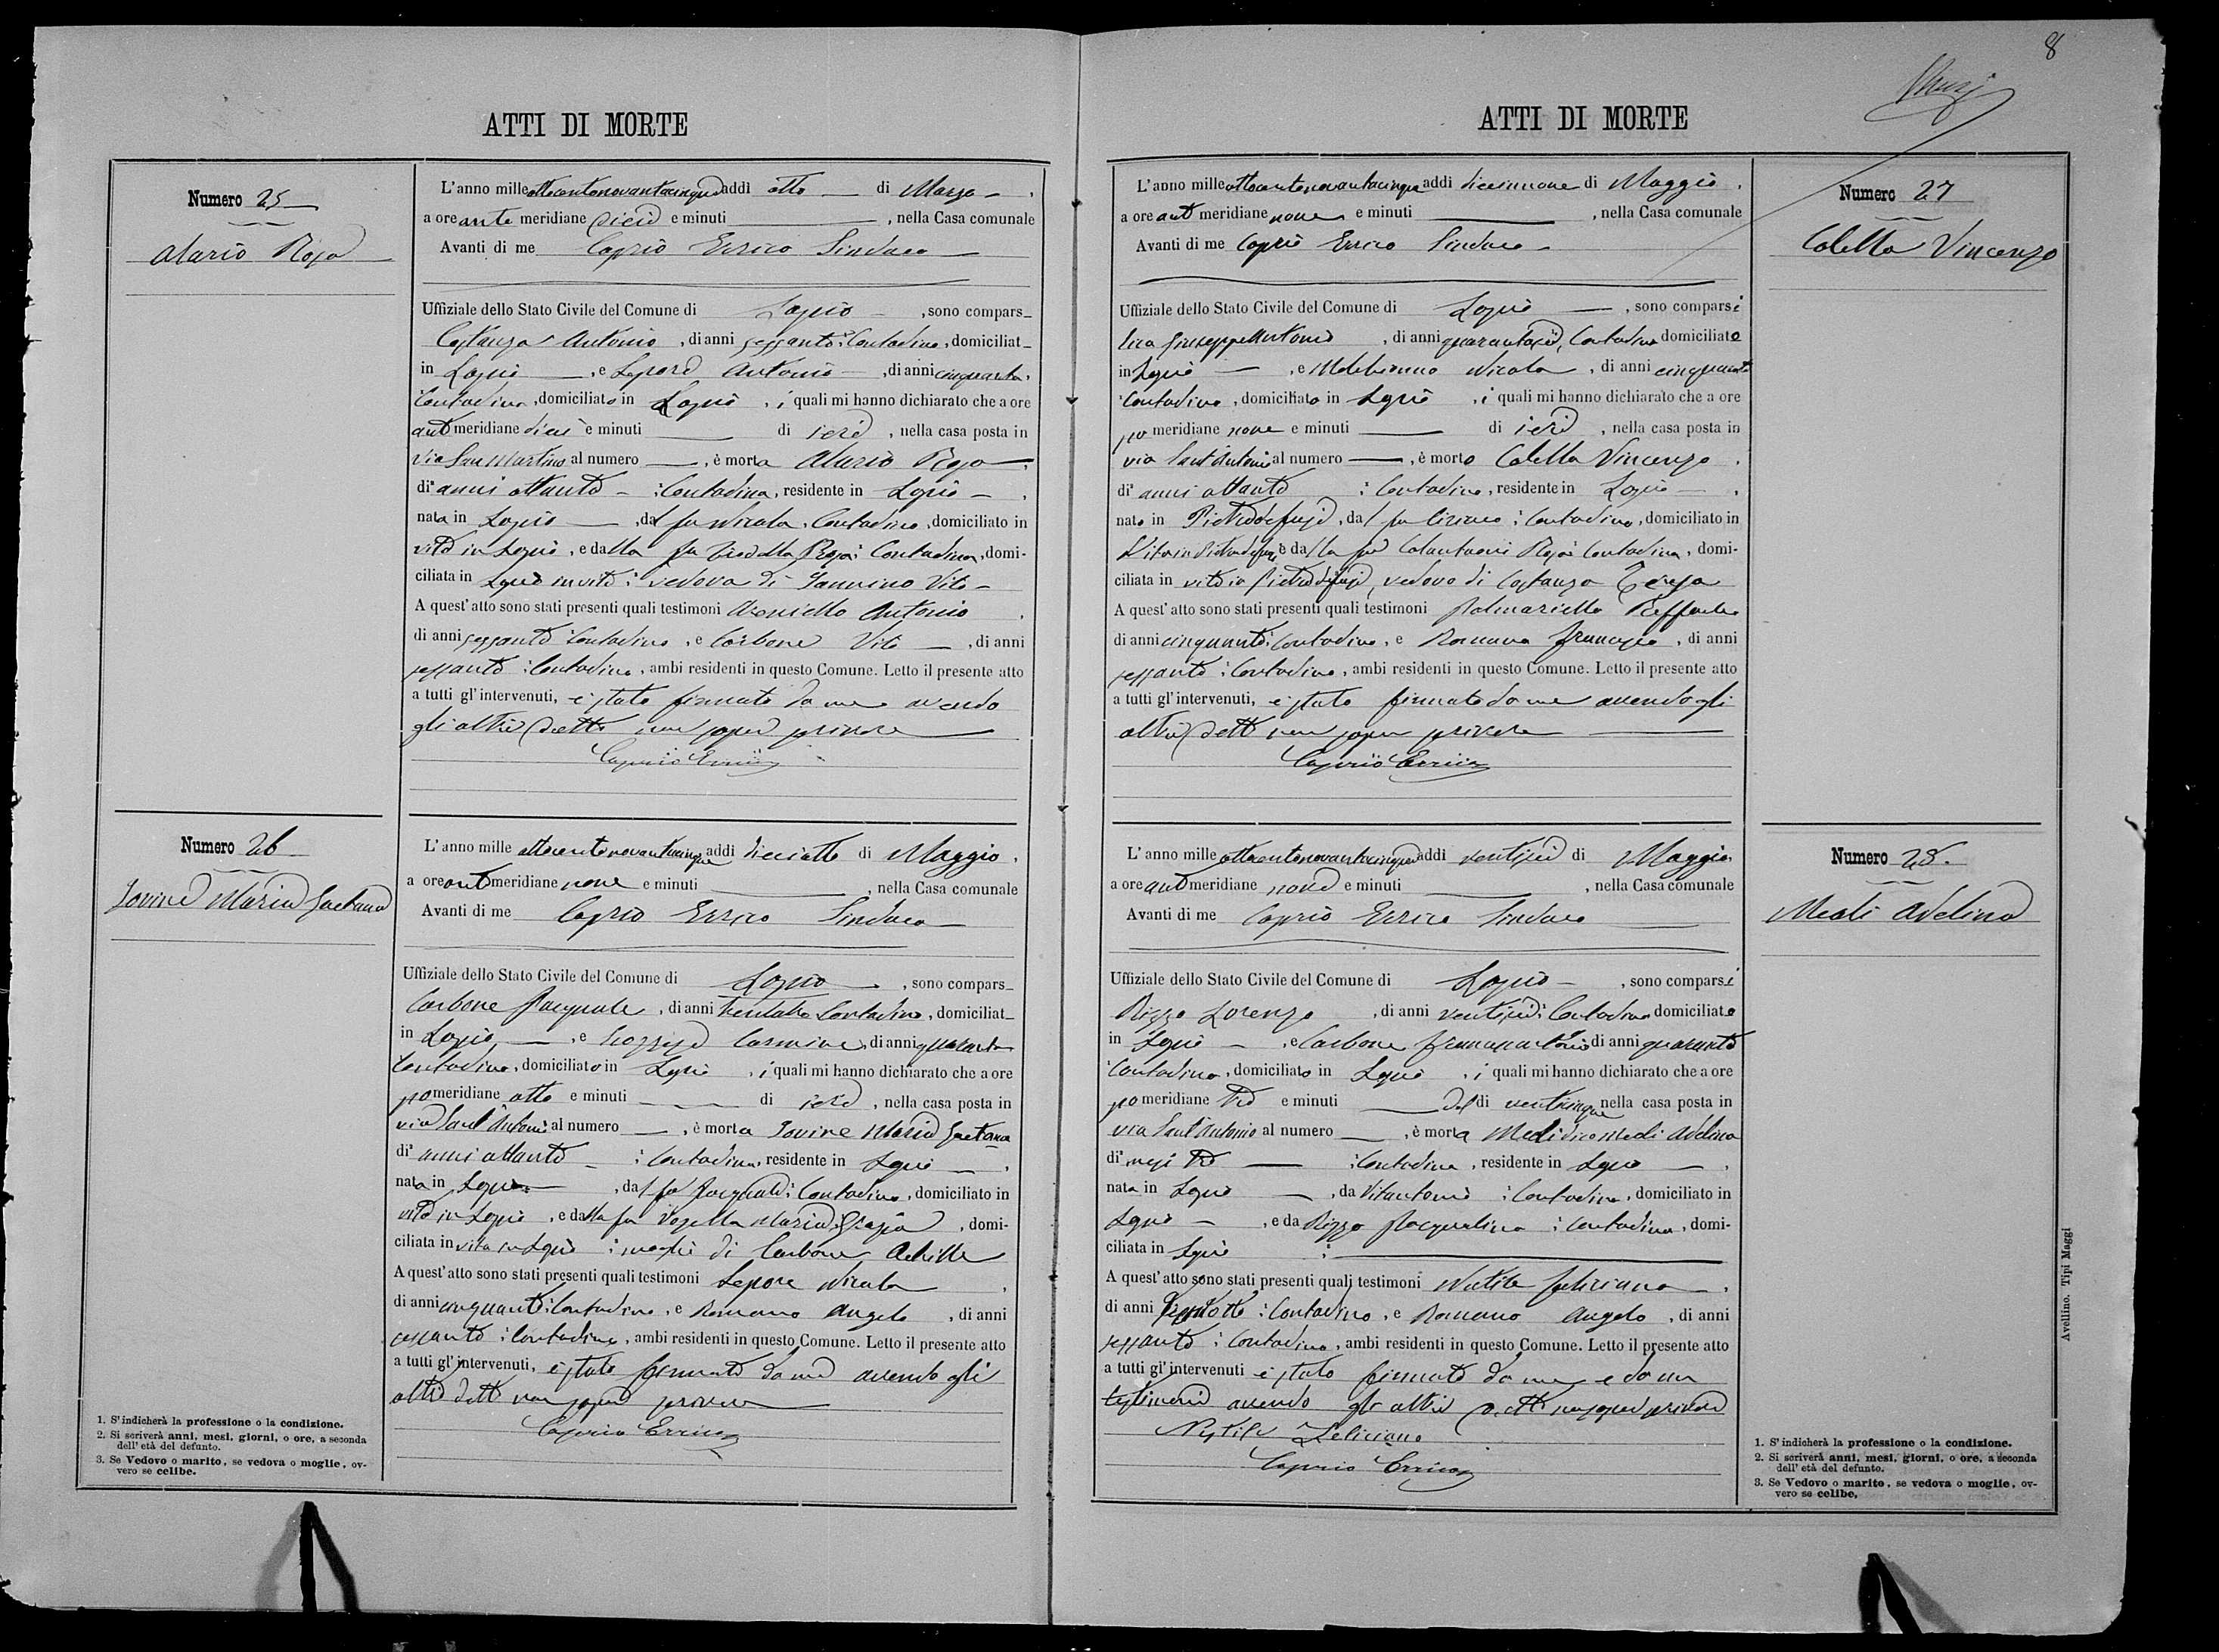 8
ATTI DI MORTE
Numero 25
Alario Rosa
L'anno mille ottocentonovantacinque addì otto di Marzo
a ore ante meridiane dieci e minuti , nella Casa comunale
Avanti di me Caprio Errico Sindaco
Uffiziale dello Stato Civile del Comune di Lapio , sono compars
Costanza Antonio , di anni sessanta Contadino, domiciliat
in Lapio , e Lepore Antonio , di anni cinquanta,
Contadino, domiciliato in Lapio , i quali mi hanno dichiarato che a ore
ant meridiane dieci e minuti di ieri , nella casa posta in
via San Martino al numero , è morta Alario Rosa
di anni ottanta Contadina, residente in Lapio
nata in Lapio , dal fu Nicola, Contadino, domiciliato in
vita in Lapio , e dalla fu Rosa Contadina, domi-
ciliata in Lapio in vita vedova di Iannino Vito
A quest'atto sono stati presenti quali testimoni Antonio
di anni sessanta Contadino, e Carbone Vito , di anni
sessanta Contadino, ambi residenti in questo Comune. Letto il presente atto
a tutti gl'intervenuti, è stato firmato da me avendo
gli altri detto non saper scrivere
Caprio Errico
Numero 26
Iovine Maria Gaetana
L'anno mille ottocentonovantacinque addì dieciotto di Maggio
a ore ant meridiane nove e minuti , nella Casa comunale
Avanti di me Caprio Errico Sindaco
Uffiziale dello Stato Civile del Comune di Lapio , sono compars
Carbone Pasquale , di anni Contadino, domiciliat
in Lapio , e Carmine, di anni quaranta
Contadino, domiciliato in Lapio , i quali mi hanno dichiarato che a ore
po meridiane otto e minuti di ieri , nella casa posta in
via Sant'Antonio al numero , è morta Iovine Maria Gaetana
di anni ottanta Contadina, residente in Lapio
nata in Lapio , dal fu Pasquale Contadino, domiciliato in
vita in Lapio , e dalla fu Maria Grazia , domi-
ciliata in vita in Lapio moglie di Carbone Achille
A quest'atto sono stati presenti quali testimoni Lepore Nicola
di anni cinquanta Contadino, e Romano Angelo , di anni
sessanta Contadino, ambi residenti in questo Comune. Letto il presente atto
a tutti gl'intervenuti, è stato firmato da me avendo gli
altri detto non saper scrivere
Caprio Errico
1. S'indicherà la professione o la condizione.
2. Si scriverà anni, mesi, giorni, o ore, a seconda
dell'età del defunto.
3. Se Vedovo o marito, se vedova o moglie, ov-
vero se celibe.
ATTI DI MORTE
Numero 27
Colella Vincenzo
L'anno mille ottocentonovantacinque addì diecinnove di Maggio
a ore ant meridiane nove e minuti , nella Casa comunale
Avanti di me Caprio Errico Sindaco
Uffiziale dello Stato Civile del Comune di Lapio , sono comparsi
Giuseppe Antonio , di anni quarantasei, Contadino domiciliato
in Lapio , e Nicola , di anni cinquanta
Contadino, domiciliato in Lapio , i quali mi hanno dichiarato che a ore
po meridiane nove e minuti di ieri , nella casa posta in
via Sant'Antonio al numero , è morto Colella Vincenzo
di anni ottanta Contadino, residente in Lapio
nato in Pietradefusi , dal fu Ciriaco Contadino, domiciliato in
vita in Pietradefusi e dalla fu Colantuoni Rosa Contadina, domi-
ciliata in vita in Pietradefusi, vedovo di Costanza Teresa
A quest'atto sono stati presenti quali testimoni Palmariello Raffaele
di anni cinquanta Contadino, e Romano Francesco , di anni
sessanta Contadino, ambi residenti in questo Comune. Letto il presente atto
a tutti gl'intervenuti, è stato firmato da me avendo gli
altri detto non saper scrivere
Caprio Errico
Numero 28.
Meoli Adelina
L'anno mille ottocentonovantacinque addì ventisei di Maggio
a ore ant meridiane nove e minuti , nella Casa comunale
Avanti di me Caprio Errico Sindaco
Uffiziale dello Stato Civile del Comune di Lapio , sono comparsi
Rizzo Lorenzo , di anni ventisei Contadino domiciliato
in Lapio , e Carbone di anni quaranta
Contadino, domiciliato in Lapio , i quali mi hanno dichiarato che a ore
po meridiane tre e minuti del dì venticinque nella casa posta in
via Sant'Antonio al numero , è morta Medi dico Meoli Adelina
di mesi tre Contadina, residente in Lapio
nata in Lapio , da Vitantonio Contadino, domiciliato in
Lapio , e da Rizzo Pasqualina Contadina, domi-
ciliata in Lapio
A quest'atto sono stati presenti quali testimoni Natile Feliciano
di anni Contadino, e Romano Angelo , di anni
sessanta Contadino, ambi residenti in questo Comune. Letto il presente atto
a tutti gl'intervenuti è stato firmato da me e da un
testimone avendo gli altri detto non saper scrivere
Feliciano
Caprio Errico
1. S'indicherà la professione o la condizione.
2. Si scriverà anni, mesi, giorni, o ore, a seconda
dell'età del defunto.
3. Se Vedovo o marito, se vedova o moglie, ov-
vero se celibe.
Avellino. Tipi Maggi